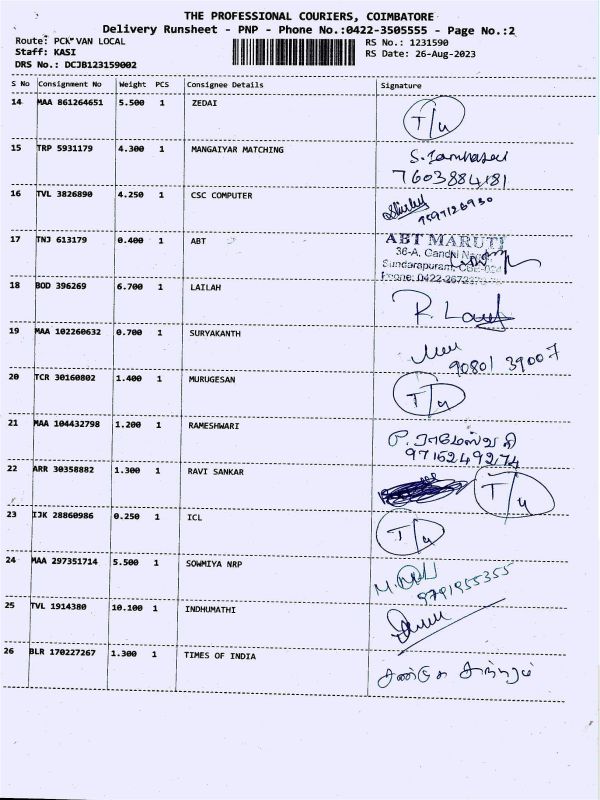 THE PROFESSIONAL COURIERS, COIMBATORE
Delivery Runsheet - PNP - Phone No.:0422-3505555 - Page No.:2
Route: PCK VAN LOCAL
RS No.: 1231590
Staff: KASI
RS Date: 26-Aug-2023
DRS No.: DCJB123159002
S No Consignment No Weight PCS Consignee Details Signature
14 MAA 861264651 5.500 1 ZEDAI T/u
15 TRP 5931179 4.300 1 MANGAIYAR MATCHING
7603884181
16 TVL 3826890 4.250 1 CSC COMPUTER
17 TNJ 613179 0.400 1 ABT ABT MARUTI
36-A, Gandhi
Sundarapuram,
Phone: 0422-
18 BOD 396269 6.700 1 LAILAH
19 MAA 102260632 0.700 1 SURYAKANTH
90801 39007
20 TCR 30160802 1.400 1 MURUGESAN T/u
21 MAA 104432798 1.200 1 RAMESHWARI
9716249274
22 ARR 30358882 1.300 1 RAVI SANKAR T/u
23 IJK 28860986 0.250 1 ICL T/u
24 MAA 297351714 5.500 1 SOWMIYA NRP
9791955355
25 TVL 1914380 10.100 1 INDHUMATHI
26 BLR 170227267 1.300 1 TIMES OF INDIA